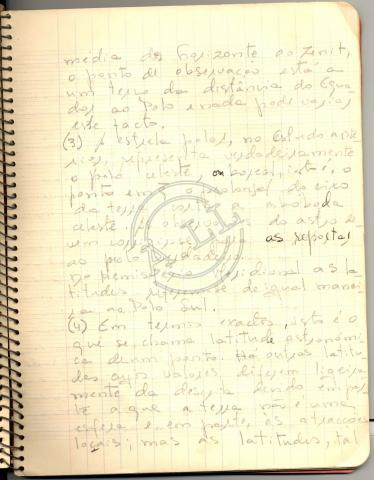 média do horizonte ao zenit,
o ponto de observação está a
um terço da distância do Equa-
dor ao Polo e nada pode variar
este facto.
(3) A estrela polar, no Estudo
representa verdadeiramente
o polo celeste, ou boreal, isto é, o
ponto em o do eixo
da terra a abóboda
celeste. do astro
as repostas
ao polo verdadeiro.
No hemisferio meridional as la-
titudes referem-se de igual manei-
ra ao Polo Sul.
(4) Em termos exactos, isto é o
que se chama latitude astronómi-
ca de um ponto. Há outras latitu-
des cujos valores diferem ligeira-
mente da descrita devido em par-
te a que a terra não é uma
esfera e, em parte, as atracções
locais; mas as latitudes, tal